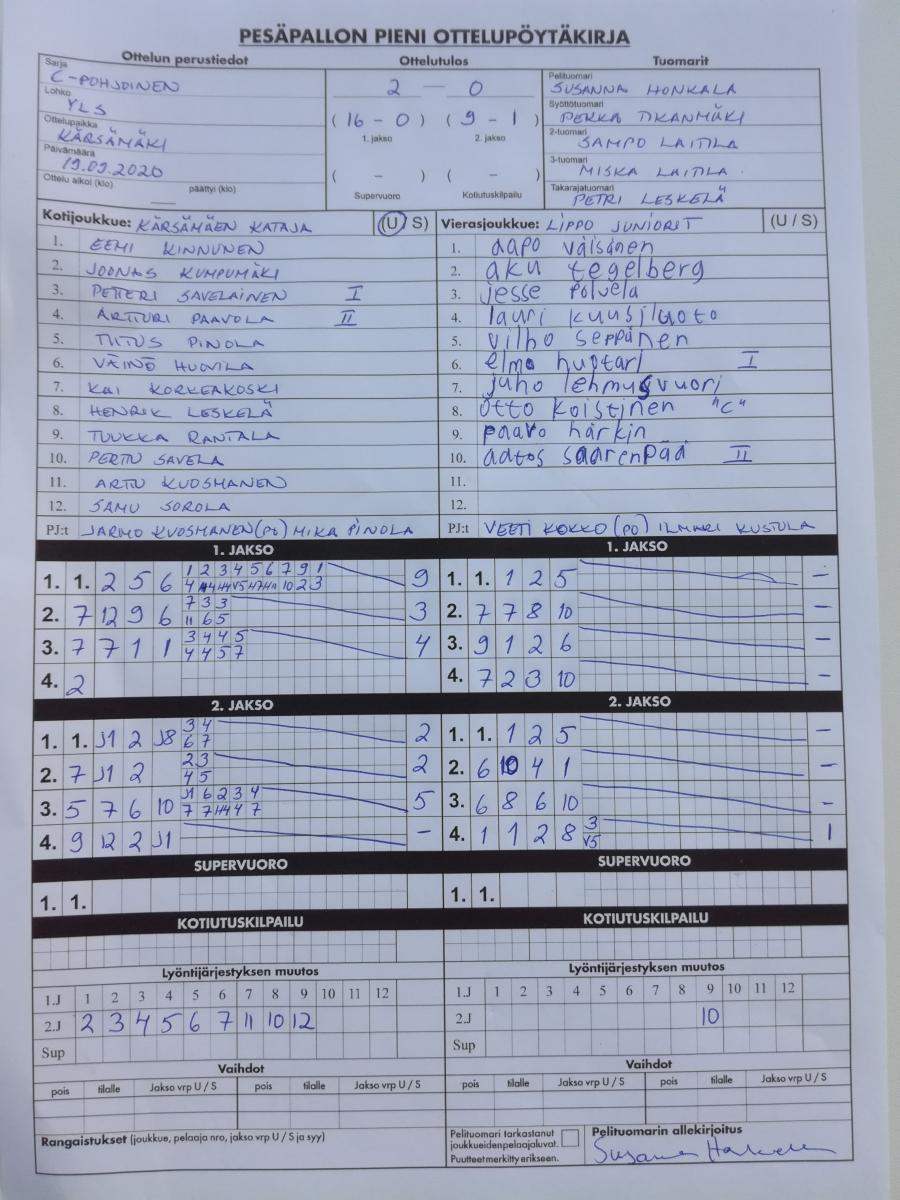 PESÄPALLON PIENI OTTELUPÖYTÄKIRJA
Ottelun perustiedot Ottelutulos Tuomarit
Sarja
C-POHJOINEN
Lohko
YLS
Ottelupaikka
KÄRSÄMÄKI
Päivämäärä
19.09.2020
Ottelu alkoi (klo) päättyi (klo)
2 – 0
(16 – 0) (9 – 1)
1. jakso 2. jakso
( – ) ( – )
Supervuoro Kotiutuskilpailu
Pelituomari
SUSANNA HONKALA
Syöttötuomari
PEKKA TIKANMÄKI
2-tuomari
SAMPO LAITILA
3-tuomari
MISKA LAITILA
Takarajatuomari
PETRI LESKELÄ
Kotijoukkue: KÄRSÄMÄEN KATAJA (U / S)
1. EEMI KINNUNEN
2. JOONAS KUMPUMÄKI
3. PETTERI SAVELAINEN I
4. ARTTURI PAAVOLA II
5. TIITUS PINOLA
6. VÄINÖ HUOVILA
7. KAI KORKEAKOSKI
8. HENRIK LESKELÄ
9. TUUKKA RANTALA
10. PERTU SAVELA
11. ARTU KUOSMANEN
12. SAMU SOROLA
PJ:t JARMO KUOSMANEN (PJ) MIKA PINOLA
Vierasjoukkue: LIPPO JUNIORIT (U / S)
1. aapo väisänen
2. aku tegelberg
3. jesse Polvela
4. lauri kuusiluoto
5. vilho seppänen
6. elmo huttari I
7. juho lehmusvuori
8. otto koistinen "C"
9. paavo härkin
10. aatos saarenpää II
11.
12.
PJ:t VEETI KOKKO (PJ) ILMARI KUSTULA
1. JAKSO
1. 1. 2 5 6 1 2 3 4 5 6 7 9 1 9
2. 7 12 9 6 7 3 3 3
11 6 5
3. 7 7 1 1 3 4 4 5 4
4 4 5 7
4. 2
1. JAKSO
1. 1. 1 2 5 –
2. 7 7 8 10 –
3. 9 1 2 6 –
4. 7 2 3 10 –
2. JAKSO
1. 1. J1 2 J8 3 4 2
6 7
2. 7 J1 2 2 3 2
4 5
3. 5 7 6 10 J1 6 2 3 4 5
4. 9 12 2 J1 –
2. JAKSO
1. 1. 1 2 5 –
2. 6 10 4 1 –
3. 6 8 6 10 –
4. 1 1 2 8 3 1
V5
SUPERVUORO
1. 1.
SUPERVUORO
1. 1.
KOTIUTUSKILPAILU
KOTIUTUSKILPAILU
Lyöntijärjestyksen muutos
1.J 1 2 3 4 5 6 7 8 9 10 11 12
2.J 2 3 4 5 6 7 11 10 12
Sup
Lyöntijärjestyksen muutos
1.J 1 2 3 4 5 6 7 8 9 10 11 12
2.J 10
Sup
Vaihdot
pois tilalle Jakso vrp U / S pois tilalle Jakso vrp U / S
Vaihdot
pois tilalle Jakso vrp U / S pois tilalle Jakso vrp U / S
Rangaistukset (joukkue, pelaaja nro, jakso vrp U / S ja syy)
Pelituomari tarkastanut
joukkueidenpelaajaluvat.
Puutteetmerkittyerikseen.
Pelituomarin allekirjoitus
Susanna Honkala